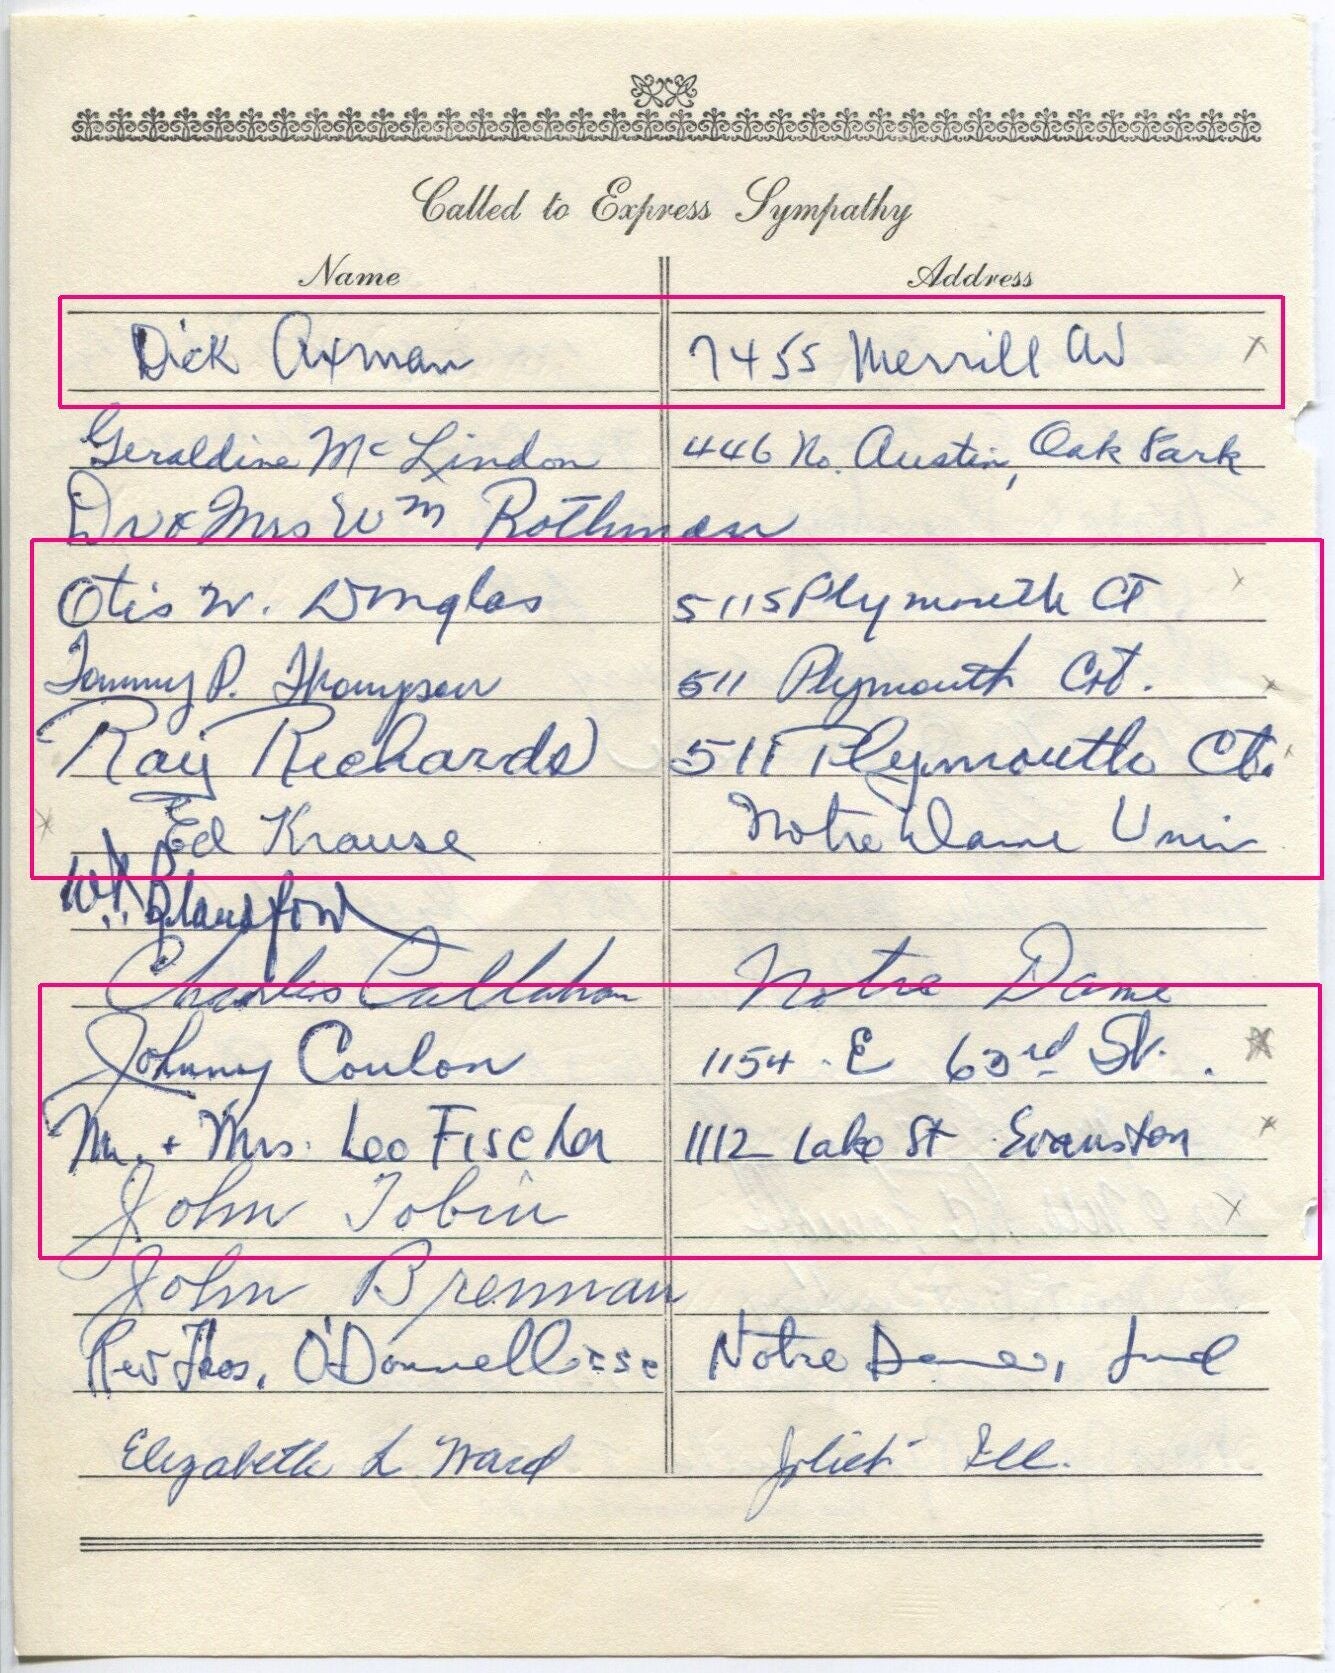 Called to Express Sympathy
Name Address
Dick Axman 7455 Merrill Av
Geraldine McLindon 446 No. Austin, Oak Park
Dr & Mrs Wm Rothman
Otis W. Douglas 5115 Plymouth Ct
Tommy P. Thompson 511 Plymouth Crt.
Ray Richards 511 Plymouth Ct.
Ed Krause Notre Dame Univ
W.
Charles Callahan Notre Dame
Johnny Coulon 1154 E 63rd St.
Mr. + Mrs. Leo Fischer 1112 Lake St Evanston
John Tobin
John Brennan
Rev Thos. O'Donnell csc Notre Dame, Ind
Elizabeth L. Ward Joliet Ill.